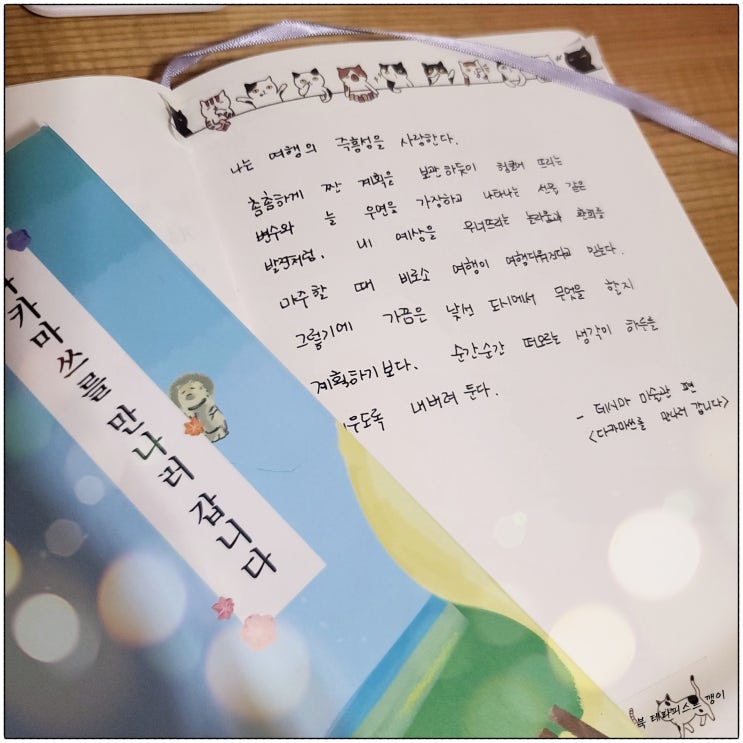 나는 여행의 즉흥성을 사랑한다.
촘촘하게 짠 계획을 보란듯이 헝클어 뜨리는
변수와 늘 우연을 가장하고 나타나는 선물 같은
발견처럼, 내 예상을 무너뜨리는 놀라움과 환희를
마주할 때 비로소 여행이 여행다워진다고 믿는다.
그렇기에 가끔은 낯선 도시에서 무엇을 할지
계획하기보다, 순간순간 떠오르는 생각이 하루를
우도록 내버려 둔다.
- 데시마 미술관 편
<다카마쓰를 만나러 갑니다>
카마쓰를 만나러 갑니다
북 테라피스트 깽이